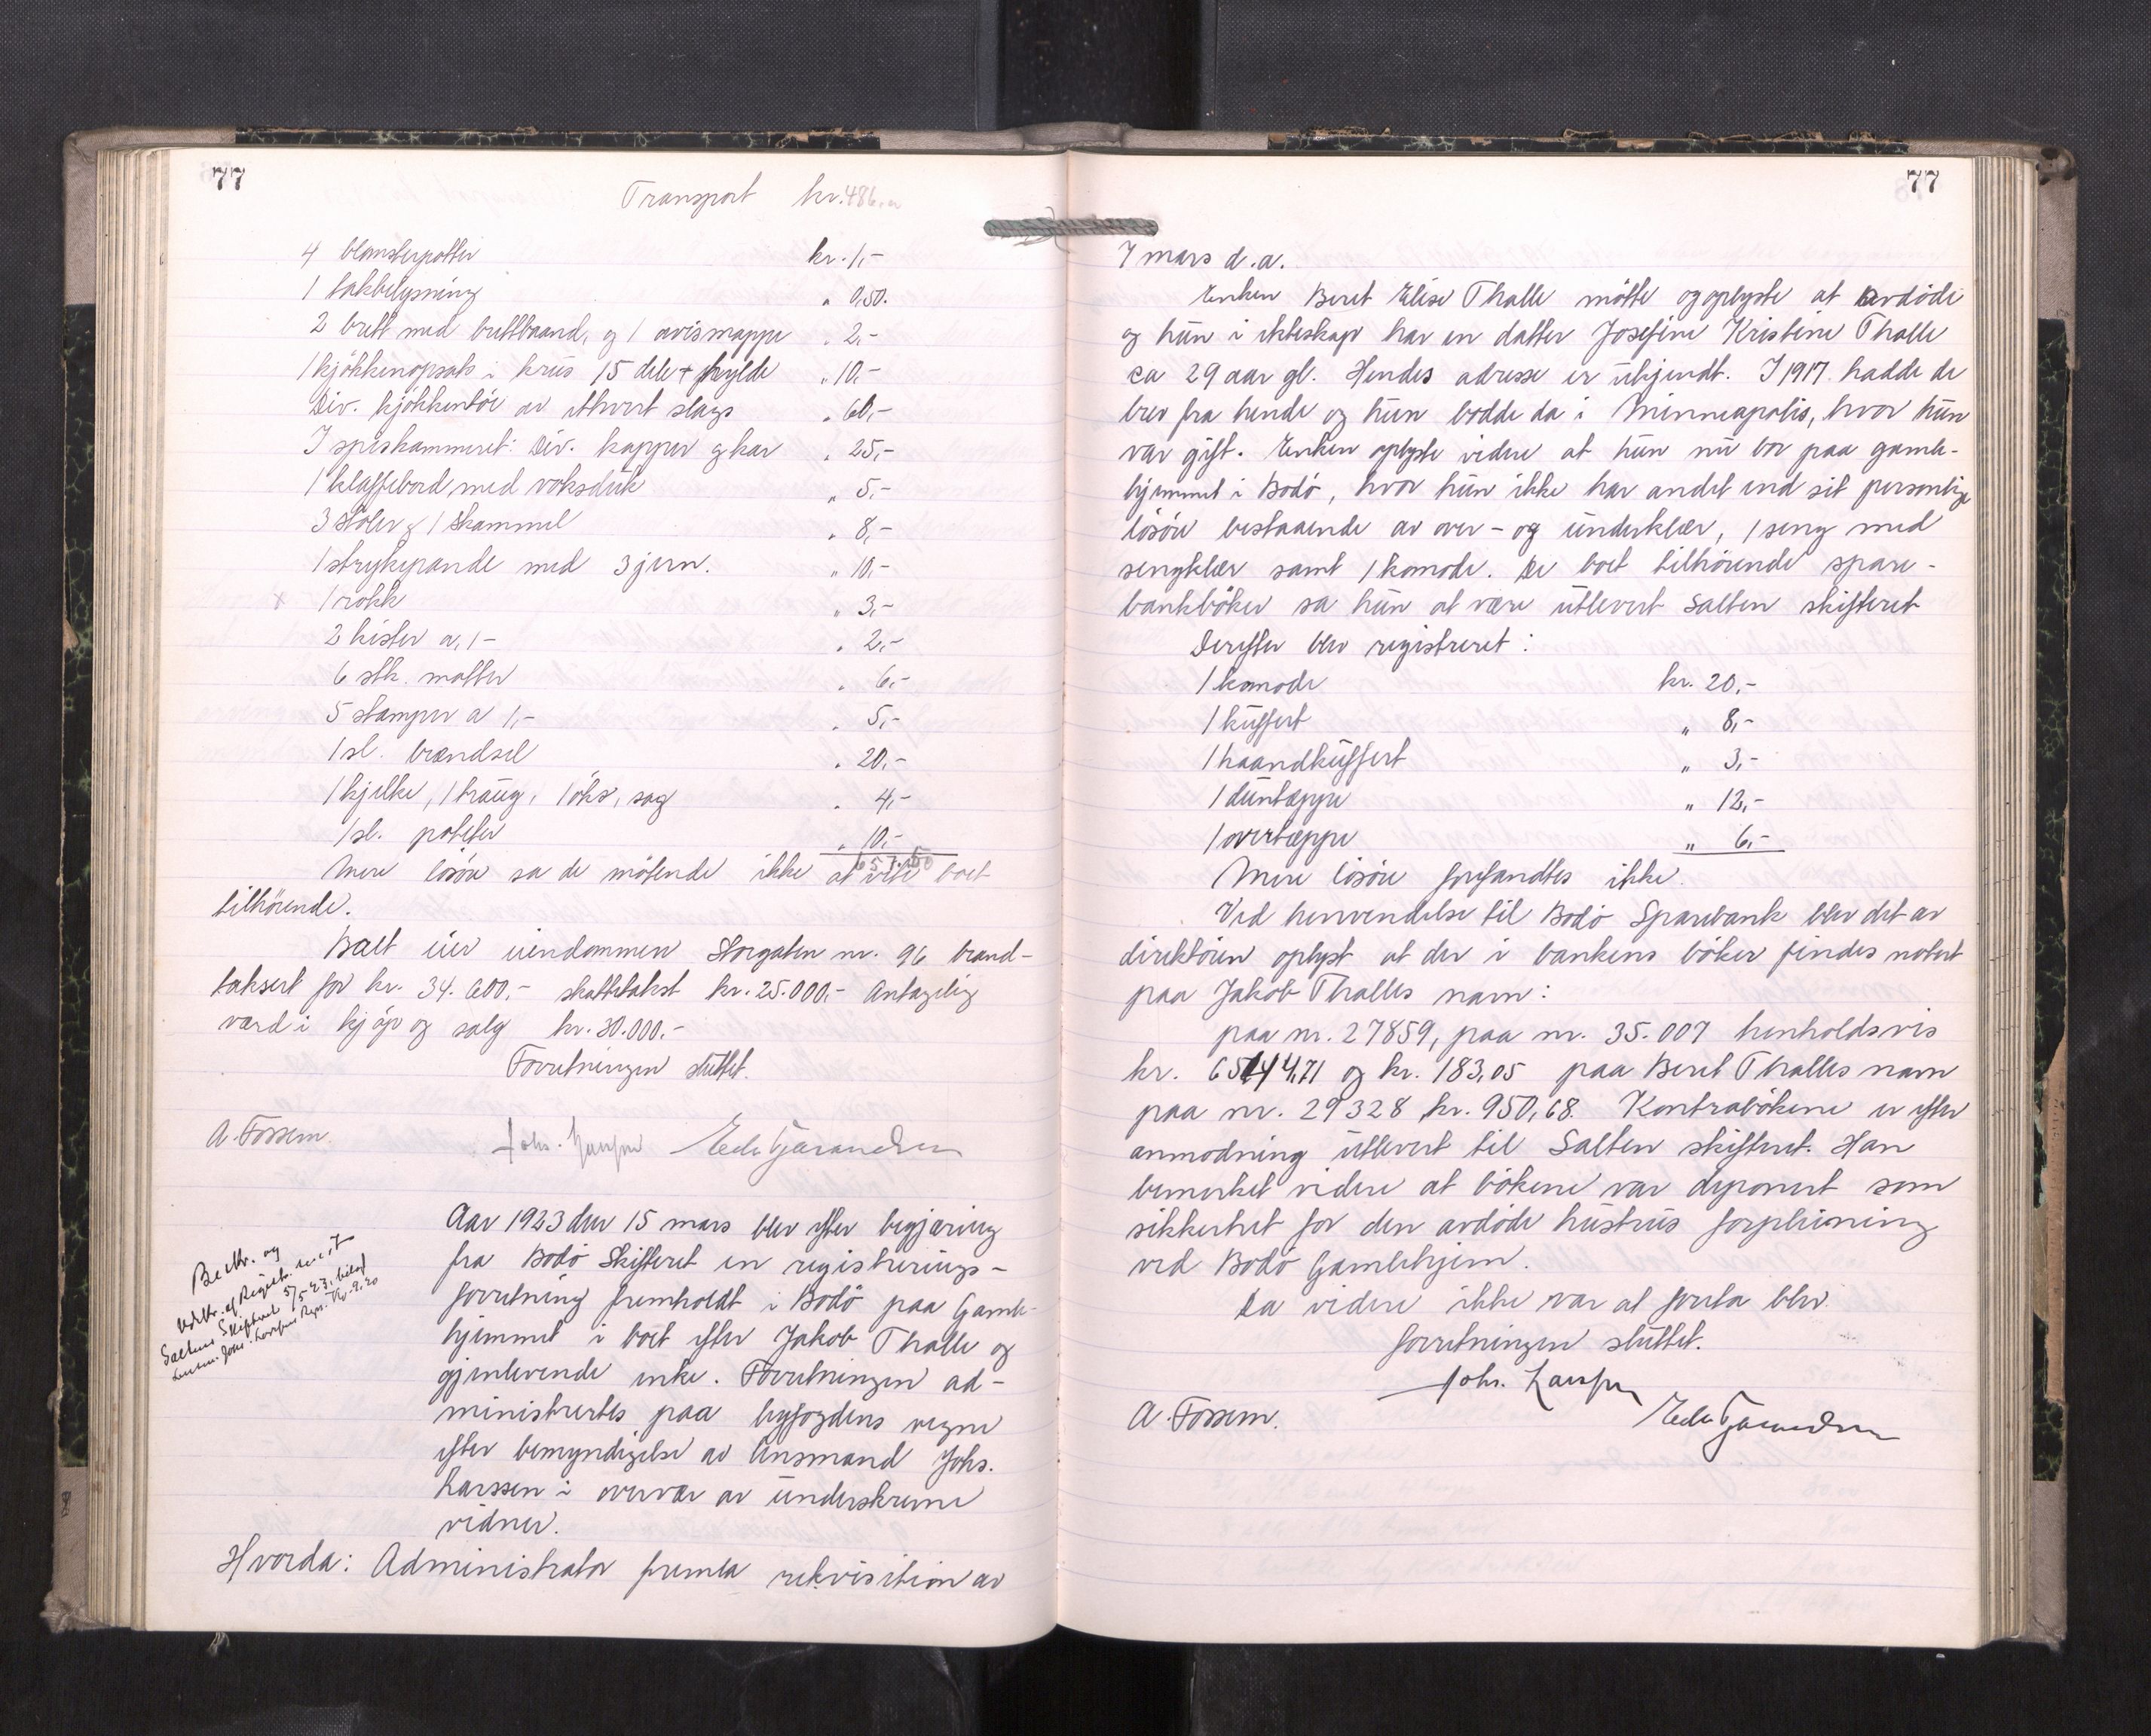 77
Transport kr. 486.
4 blomsterpotter kr. 1,-
1 takbelysning " 0,50.
2 brett med brettbaand, og 1 avismappe " 2,-
1 kjökkenopsats i krus 15 dele + hylde " 10,-
Div. kjökkentöi av ethvert slags " 60,-
I spiskammeret: Div. kopper og kar " 25,-
1 klaffebord med voksduk " 5,-
3 stoler og 1 skammel " 8,-
1 strykepande med 3 jern. " 10,-
x 1 rokk " 3,-
2 kister a 1,- " 2,-
6 stk. matter " 6,-
5 stamper a 1,- " 5,-
1 sl. brændsel " 20,-
1 kjelke, 1 traug, 1 öks, sag " 4,-
1 sl. poteter " 10,-
657.50
Mere lösöre sa de mötende ikke at vite boet
tilhörende.
Boet eier eiendommen Storgaten nr. 96 brand-
taksert for kr. 34.600,- skattetakst kr. 25.000,- Antagelig
værd i kjöp og salg kr. 30.000.-
Forretningen sluttet.
A. Fossem. Johs. Larssen
Aar 1923 den 15 mars blev efter begjæring
fra Bodö Skifteret en registrerings-
forretning fremholdt i Bodö paa Gamle-
hjemmet i boet efter Jakob Thalle og
gjenlevende enke. Forretningen ad-
ministrertes paa byfogdens vegne
efter bemyndigelse av lensmand Johs.
Larssen i overvær av underskrevne
vidner.
Beskr. og
Utskr. af Registr. sendt
Saltens Skifteret 5/5-23, bilag
Lensm. Johs. Larssens Regn.
Hvorda: Administrator fremla rekvisition av
77
7 mars d.a.
Enken Beret Elise Thalle mötte og oplyste at avdöde
og hun i ekteskap har en datter Josefine Kristine Thalle
ca 29 aar gl. Hendes adresse er ukjendt. I 1917 hadde de
brev fra hende og hun bodde da i Minneapolis, hvor hun
var gift. Enken oplyste videre at hun nu bor paa gamle-
hjemmet i Bodö, hvor hun ikke har andet end sit personlige
lösöre bestaaende av over- og underklær, 1 seng med
sengklær samt 1 komode. De boet tilhörende spare-
bankböker sa hun at være utlevert Salten skifteret
Derefter blev registreret:
1 komode kr. 20,-
1 kuffert " 8,-
1 haandkuffert " 3,-
1 duntæppe " 12,-
1 overtæppe " 6,-
Mere lösöre forefandtes ikke.
Ved henvendelse til Bodö Sparebank blev det av
direktören oplyst at der i bankens böker findes notert
paa Jakob Thalles navn:
paa nr. 27859, paa nr. 35.007 henholdsvis
kr. 6544,71 og kr. 183,05 paa Beret Thalles navn
paa nr. 29328 kr. 950,68. Kontrabökene er efter
anmodning utlevert til Salten skifteret. Han
bemerket videre at bökene var deponert som
sikkerhet for den avdöde hustrus forpleining
ved Bodö Gamlehjem.
Da videre ikke var at foreta blev
forretningen sluttet.
Johs. Larssen
A. Fossem.